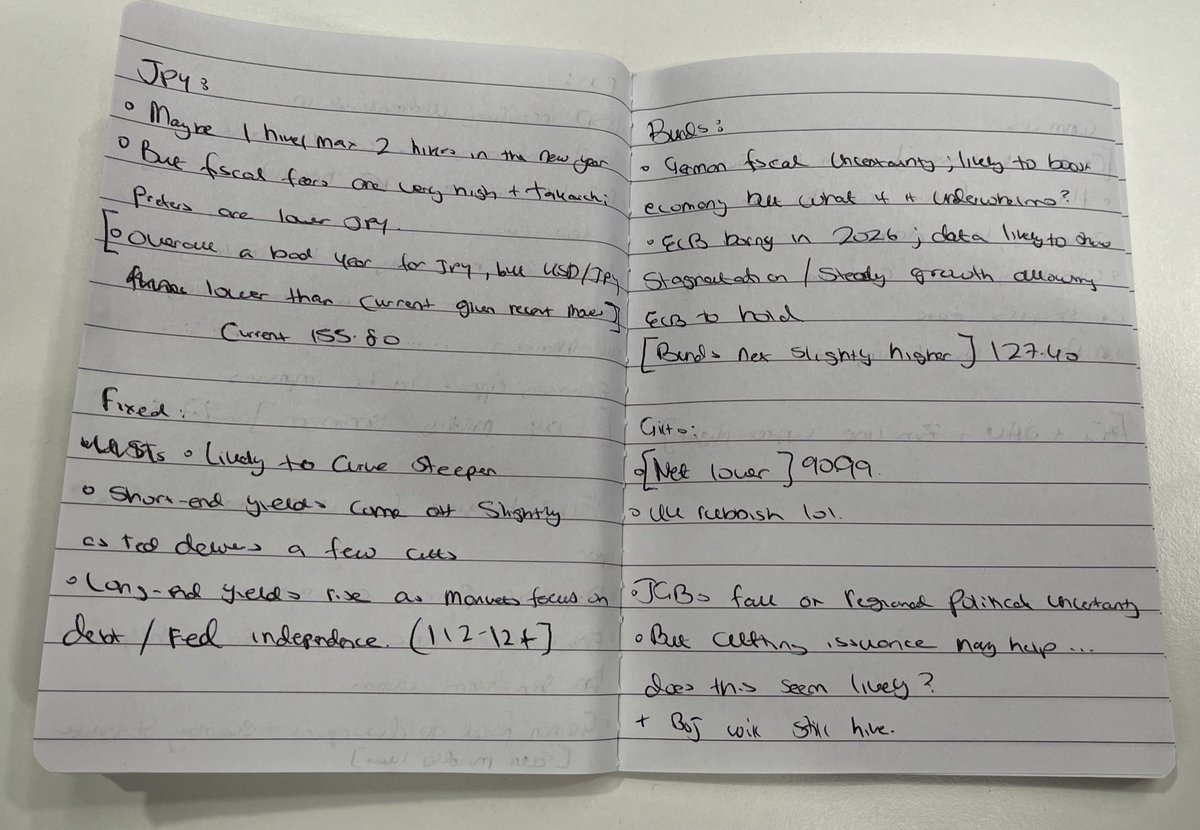 JPY:
• Maybe 1 hike/max 2 hikes in the new year
• But fiscal fears are very high + Takaichi
Prefers are lower JPY.
[• Overall a bad year for JPY, but USD/JPY
lower than current given recent move]
Current 155.80
Fixed:
USTs • Likely to curve steepen
• Short-end yields come off slightly
as Fed delivers a few cuts
• Long-end yields rise as markets focus on
debt / Fed independence. (112-12+]
Bunds:
• German fiscal uncertainty; likely to boost
economy but what if it underwhelms?
• ECB boring in 2026; data likely to show
Stagnation / Steady growth allowing
ECB to hold
[Bunds net slightly higher] 127.40
Gilts:
• [Net lower] 9099
• UK rubbish lol.
• JGBs fall on regional political uncertainty
• But cutting issuance may help...
does this seem likely?
+ BoJ will still hike.